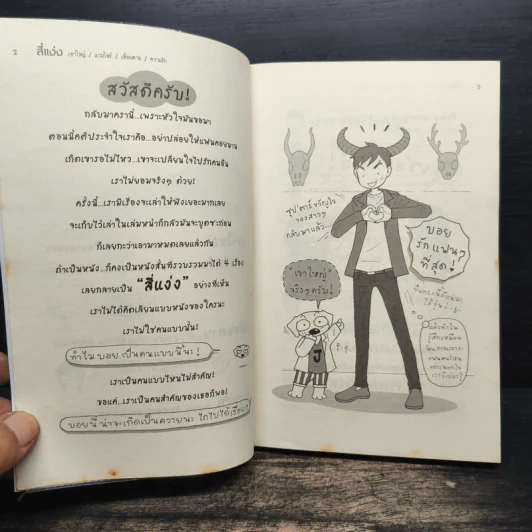 2 สี่แง่ง เขาใหญ่ / แวมไพร์ / เพื่อนตาย / ความรัก
สวัสดีครับ!
กลับมาครานี้...เพราะหัวใจมันขอมา
ตอนนี้คติประจำใจเราคือ...อย่าปล่อยให้แฟนคอยนาน
เกิดเขารอไม่ไหว...เขาจะเปลี่ยนใจไปรักคนอื่น
เราไม่ยอมจริงๆ ด้วย!
ครั้งนี้...เรามีเรื่องจะเล่าให้ฟังเยอะมากเลย
จะเก็บไว้เล่าในเล่มหน้าก็กลัวมันจะบูดซะก่อน
ก็เลยกะว่าเอามาหมดเลยแล้วกัน
ถ้าเป็นหนัง...ก็คงเป็นหนังสั้นที่รวบรวมมาได้ 4 เรื่อง
เลยกลายเป็น "สี่แง่ง" อย่างที่เห็น
เราไม่ได้คิดเลียนแบบหนังของใครนะ
เราไม่ใช่คนแบบนั้น!
ทำไม บอย เป็นคนแบบนี้นะ!
เราเป็นคนแบบไหนไม่สำคัญ!
ขอแค่...เราเป็นคนสำคัญของเธอก็พอ!
บอยนี่ น่าจะเกิดเป็นควายนะ ไถไปได้เรื่อย!
3
ซุป'ตาร์ ขวัญใจ
ของสาวๆ
กลับมาแล้ว
บอย
รักแฟนๆ
ที่สุด!
"เขาใหญ่"
จริงๆ ครับ!
J